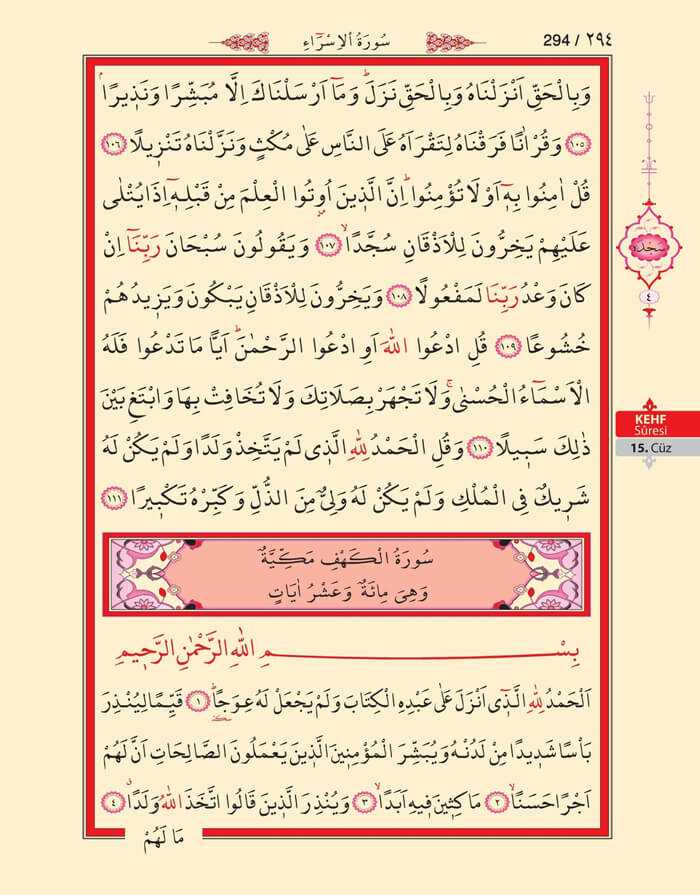 294 / ٢٩٤
سُورَةُ الْاِسْرَٓاءِ
وَبِالْحَقِّ اَنْزَلْنَاهُ وَبِالْحَقِّ نَزَلَۜ وَمَٓا اَرْسَلْنَاكَ اِلَّا مُبَشِّرًا وَنَذ۪يرًاۢ
﴿١٠٥﴾ وَقُرْاٰنًا فَرَقْنَاهُ لِتَقْرَاَهُ عَلَى النَّاسِ عَلٰى مُكْثٍ وَنَزَّلْنَاهُ تَنْز۪يلًا ﴿١٠٦﴾
قُلْ اٰمِنُوا بِه۪ٓ اَوْ لَا تُؤْمِنُواۜ اِنَّ الَّذ۪ينَ اُوتُوا الْعِلْمَ مِنْ قَبْلِه۪ٓ اِذَا يُتْلٰى
عَلَيْهِمْ يَخِرُّونَ لِلْاَذْقَانِ سُجَّدًاۙ ﴿١٠٧﴾ وَيَقُولُونَ سُبْحَانَ رَبِّنَٓا اِنْ
كَانَ وَعْدُ رَبِّنَا لَمَفْعُولًا ﴿١٠٨﴾ وَيَخِرُّونَ لِلْاَذْقَانِ يَبْكُونَ وَيَز۪يدُهُمْ
خُشُوعًا ﴿١٠٩﴾ قُلِ ادْعُوا اللّٰهَ اَوِ ادْعُوا الرَّحْمٰنَۜ اَيًّا مَا تَدْعُوا فَلَهُ
الْاَسْمَٓاءُ الْحُسْنٰىۚ وَلَا تَجْهَرْ بِصَلَاتِكَ وَلَا تُخَافِتْ بِهَا وَابْتَغِ بَيْنَ
ذٰلِكَ سَب۪يلًا ﴿١١٠﴾ وَقُلِ الْحَمْدُ لِلّٰهِ الَّذ۪ي لَمْ يَتَّخِذْ وَلَدًا وَلَمْ يَكُنْ لَهُ
شَر۪يكٌ فِي الْمُلْكِ وَلَمْ يَكُنْ لَهُ وَلِيٌّ مِنَ الذُّلِّ وَكَبِّرْهُ تَكْب۪يرًا ﴿١١١﴾
سُورَةُ الْكَهْفِ مَكِّيَّةٌ
وَهِيَ مِائَةٌ وَعَشْرُ اٰيَاتٍ
بِسْمِ اللّٰهِ الرَّحْمٰنِ الرَّح۪يمِ
اَلْحَمْدُ لِلّٰهِ الَّذ۪ٓي اَنْزَلَ عَلٰى عَبْدِهِ الْكِتَابَ وَلَمْ يَجْعَلْ لَهُ عِوَجًاۜ ﴿١﴾ قَيِّمًا لِيُنْذِرَ
بَأْسًا شَد۪يدًا مِنْ لَدُنْهُ وَيُبَشِّرَ الْمُؤْمِن۪ينَ الَّذ۪ينَ يَعْمَلُونَ الصَّالِحَاتِ اَنَّ لَهُمْ
اَجْرًا حَسَنًاۙ ﴿٢﴾ مَاكِث۪ينَ ف۪يهِ اَبَدًاۙ ﴿٣﴾ وَيُنْذِرَ الَّذ۪ينَ قَالُوا اتَّخَذَ اللّٰهُ وَلَدًاۗ ﴿٤﴾
مَا لَهُمْ
سجده
٤
KEHF
Sûresi
15. Cüz